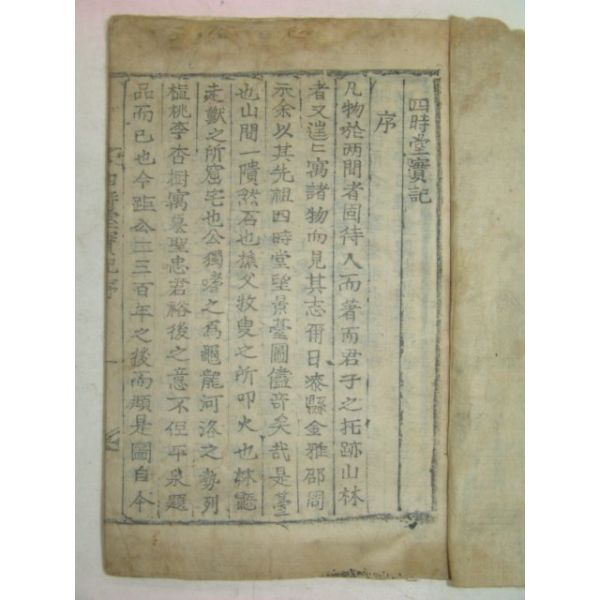 四時堂實記
序
凡物於两間者固待人而著而君子之托跡山林
者又遑〻寓諸物而見其志爾日漆縣金雅邵周
示余以其先祖四時堂望景臺圖儘奇矣哉是臺
也山間一隤然石也樵父牧叟之所叩火也林
走獸之所窟宅也公獨睹之為龜龍河洛之勢列
植桃李杏樹寓慕聖忠君裕後之意不但平泉題
品而已也今距公二三百年之後而顧是圖自今
四時堂實記序
一